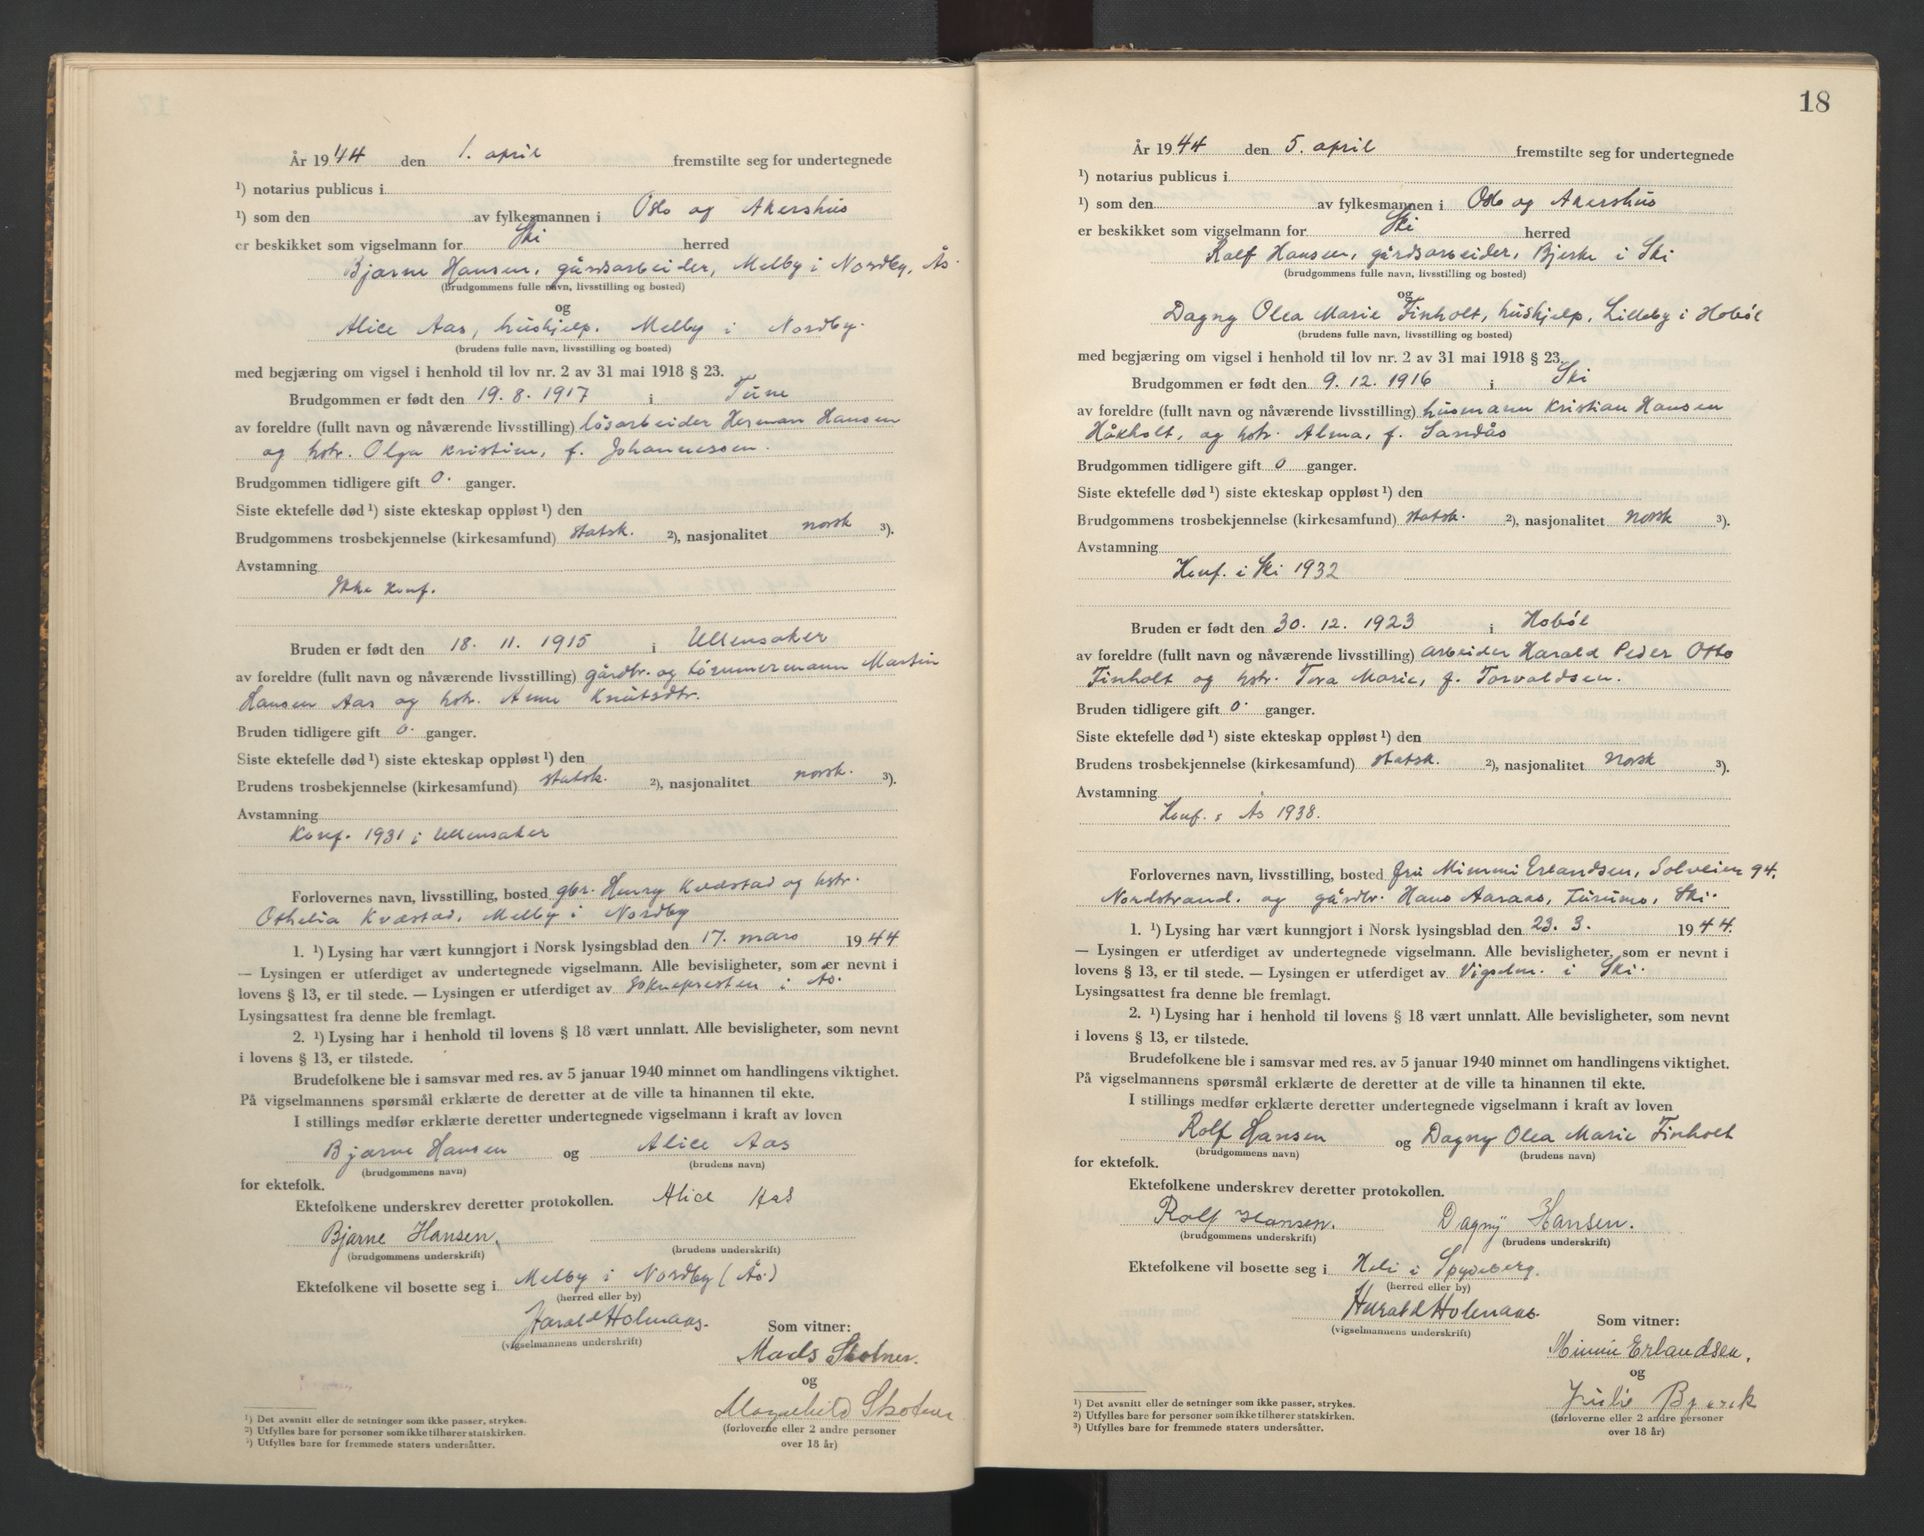 År 1944 den 1. april fremstilte seg for undertegnede
¹) notarius publicus i
¹) som den av fylkesmannen i Oslo og Akershus
er beskikket som vigselmann for Ski herred
Bjarne Hansen, gårdsarbeider, Melby i Nordby, Ås.
(brudgommens fulle navn, livsstilling og bosted)
og
Alice Aas, hushjelp. Melby i Nordby.
(brudens fulle navn, livsstilling og bosted)
med begjæring om vigsel i henhold til lov nr. 2 av 31 mai 1918 § 23.
Brudgommen er født den 19. 8. 1917 i Tune
av foreldre (fullt navn og nåværende livsstilling) løsarbeider Herman Hansen
og hstr. Olga Kristine, f. Johannessen.
Brudgommen tidligere gift 0. ganger.
Siste ektefelle død ¹) siste ekteskap oppløst ¹) den
Brudgommens trosbekjennelse (kirkesamfund) statsk. ²), nasjonalitet norsk ³).
Avstamning
Ikke konf.
Bruden er født den 18. 11. 1915 i Ullensaker
av foreldre (fullt navn og nåværende livsstilling) gårdbr. og tømmermann Martin
Hansen Aas og hstr. Anne Knutsdtr.
Bruden tidligere gift 0. ganger.
Siste ektefelle død ¹) siste ekteskap oppløst ¹) den
Brudens trosbekjennelse (kirkesamfund) statsk. ²), nasjonalitet norsk. ³)
Avstamning
Konf. 1931 i Ullensaker
Forlovernes navn, livsstilling, bosted gbr. Henry Kvæstad og hstr.
Othelia Kvæstad, Melby i Nordby
1. ¹) Lysing har vært kunngjort i Norsk lysingsblad den 17. mars 1944
— Lysingen er utferdiget av undertegnede vigselmann. Alle bevisligheter, som er nevnt i
lovens § 13, er til stede. — Lysingen er utferdiget av soknepresten i Ås.
Lysingsattest fra denne ble fremlagt.
2. ¹) Lysing har i henhold til lovens § 18 vært unnlatt. Alle bevisligheter, som nevnt
i lovens § 13, er tilstede.
Brudefolkene ble i samsvar med res. av 5 januar 1940 minnet om handlingens viktighet.
På vigselmannens spørsmål erklærte de deretter at de ville ta hinannen til ekte.
I stillings medfør erklærte deretter undertegnede vigselmann i kraft av loven
Bjarne Hansen og Alice Aas
(brudgommens navn) (brudens navn)
for ektefolk.
Ektefolkene underskrev deretter protokollen. Alice Aas
Bjarne Hansen.
(brudgommens underskrift) (brudens underskrift)
Ektefolkene vil bosette seg i Melby i Nordby (Ås.)
(herred eller by)
Harald Holmaas.
(vigselmannens underskrift)
Som vitner:
Mads Skotner.
og
Skotner
(forloverne eller 2 andre personer
over 18 år)
¹) Det avsnitt eller de setninger som ikke passer, strykes.
²) Utfylles bare for personer som ikke tilhører statskirken.
³) Utfylles bare for fremmede staters undersåtter.
18
År 1944 den 5. april fremstilte seg for undertegnede
¹) notarius publicus i
¹) som den av fylkesmannen i Oslo og Akershus
er beskikket som vigselmann for Ski herred
Rolf Hansen, gårdsarbeider, Bjerke i Ski
(brudgommens fulle navn, livsstilling og bosted)
og
Dagny Olea Marie Finholt, hushjelp, Lilleby i Hobøl
(brudens fulle navn, livsstilling og bosted)
med begjæring om vigsel i henhold til lov nr. 2 av 31 mai 1918 § 23.
Brudgommen er født den 9. 12. 1916 i Ski
av foreldre (fullt navn og nåværende livsstilling) husmann Kristian Hansen
Håkholt, og hstr. Alma, f. Sandås
Brudgommen tidligere gift 0 ganger.
Siste ektefelle død ¹) siste ekteskap oppløst ¹) den
Brudgommens trosbekjennelse (kirkesamfund) statsk. ²), nasjonalitet norsk ³).
Avstamning
Konf. i Ski 1932
Bruden er født den 30. 12. 1923 i Hobøl
av foreldre (fullt navn og nåværende livsstilling) arbeider Harald Peder Otto
Finholt og hstr. Tora Marie, f. Torvaldsen.
Bruden tidligere gift 0. ganger.
Siste ektefelle død ¹) siste ekteskap oppløst ¹) den
Brudens trosbekjennelse (kirkesamfund) statsk. ²), nasjonalitet norsk ³).
Avstamning
Konf. i Ås 1938.
Forlovernes navn, livsstilling, bosted fru Mimmi Erlandsen, Solveien 94,
Nordstrand. og gårdbr. Hans Aaraas, Furumo, Ski.
1. ¹) Lysing har vært kunngjort i Norsk lysingsblad den 23. 3. 1944.
— Lysingen er utferdiget av undertegnede vigselmann. Alle bevisligheter, som er nevnt i
lovens § 13, er til stede. — Lysingen er utferdiget av Vigselm. i Ski.
Lysingsattest fra denne ble fremlagt.
2. ¹) Lysing har i henhold til lovens § 18 vært unnlatt. Alle bevisligheter, som nevnt
i lovens § 13, er tilstede.
Brudefolkene ble i samsvar med res. av 5 januar 1940 minnet om handlingens viktighet.
På vigselmannens spørsmål erklærte de deretter at de ville ta hinannen til ekte.
I stillings medfør erklærte deretter undertegnede vigselmann i kraft av loven
Rolf Hansen og Dagny Olea Marie Finholt
(brudgommens navn) (brudens navn)
for ektefolk.
Ektefolkene underskrev deretter protokollen.
Rolf Hansen. Dagny Hansen.
(brudgommens underskrift) (brudens underskrift)
Ektefolkene vil bosette seg i Heli i Spydeberg.
(herred eller by)
Harald Holmaas.
(vigselmannens underskrift)
Som vitner:
Mimmi Erlandsen.
og
Julie Bjerck
(forloverne eller 2 andre personer
over 18 år)
¹) Det avsnitt eller de setninger som ikke passer, strykes.
²) Utfylles bare for personer som ikke tilhører statskirken.
³) Utfylles bare for fremmede staters undersåtter.